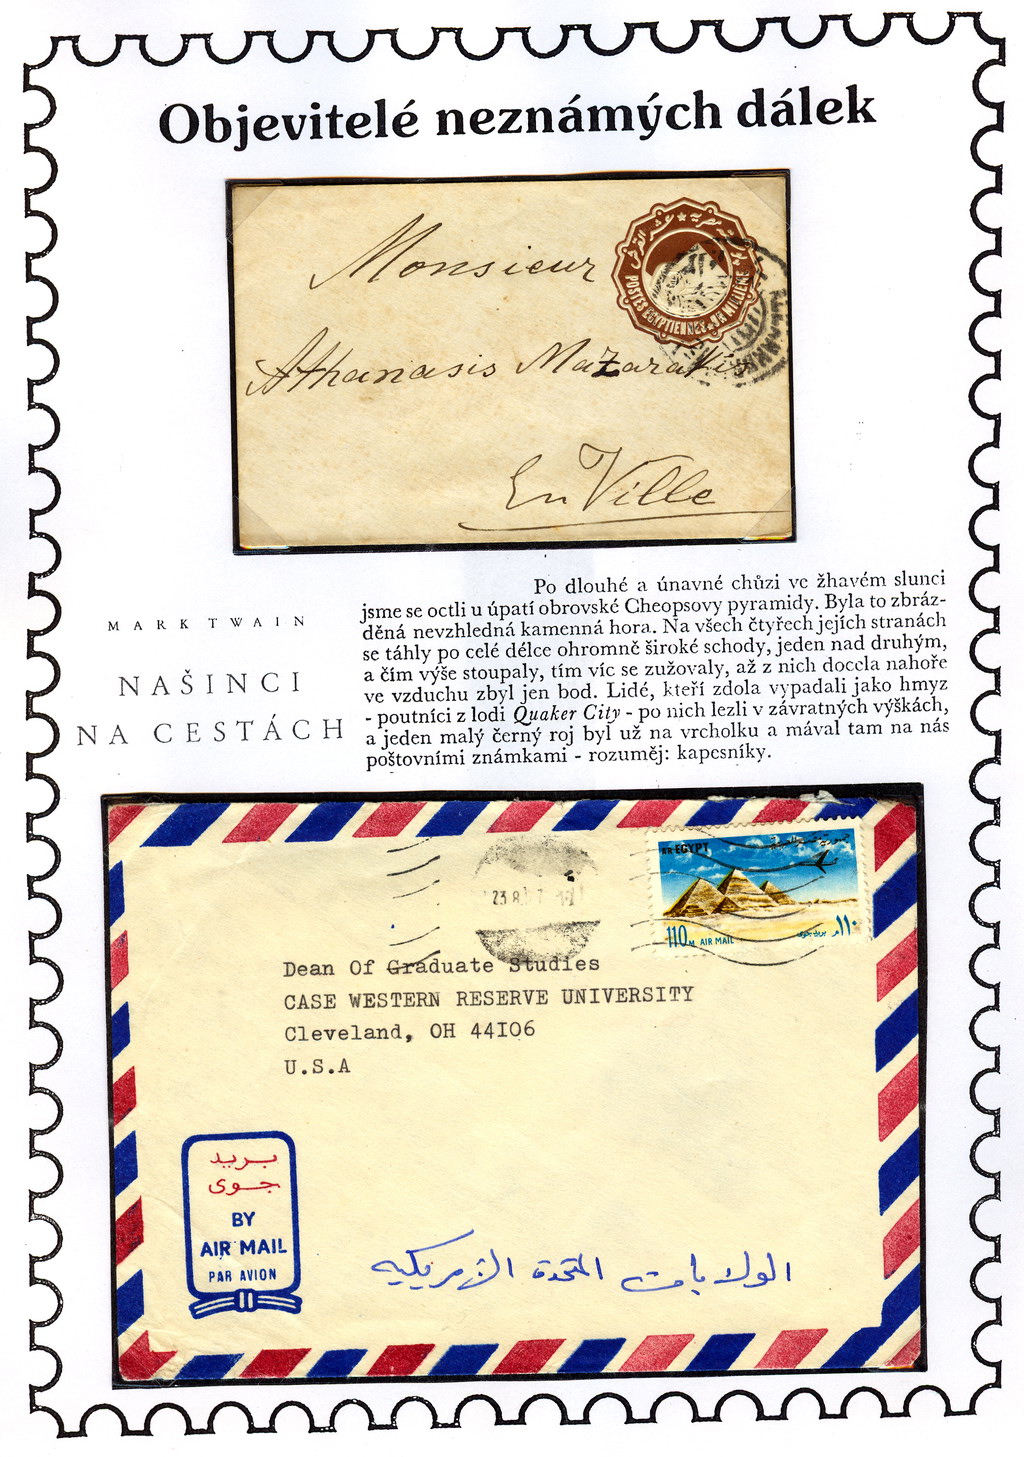 Objevitelé neznámých dálek
Monsieur
POSTES EGYPTIENNES
Athanasis Mazarakis
En Ville
MARK TWAIN
NAŠINCI
NA CESTÁCH
Po dlouhé a únavné chůzi ve žhavém slunci
jsme se octli u úpatí obrovské Cheopsovy pyramidy. Byla to zbráz-
děná nevzhledná kamenná hora. Na všech čtyřech jejích stranách
se táhly po celé délce ohromně široké schody, jeden nad druhým,
a čím výše stoupaly, tím víc se zužovaly, až z nich docela nahoře
ve vzduchu zbyl jen bod. Lidé, kteří zdola vypadali jako hmyz
- poutníci z lodi Quaker City - po nich lezli v závratných výškách,
a jeden malý černý roj byl už na vrcholku a mával tam na nás
poštovními známkami - rozuměj: kapesníky.
AR EGYPT
110 M AIR MAIL
١١٠ م بريد جوى
23 8
Dean Of Graduate Studies
CASE WESTERN RESERVE UNIVERSITY
Cleveland, OH 44I06
U.S.A
بريد
جوى
BY
AIR MAIL
PAR AVION
الولايات المتحدة الأمريكية